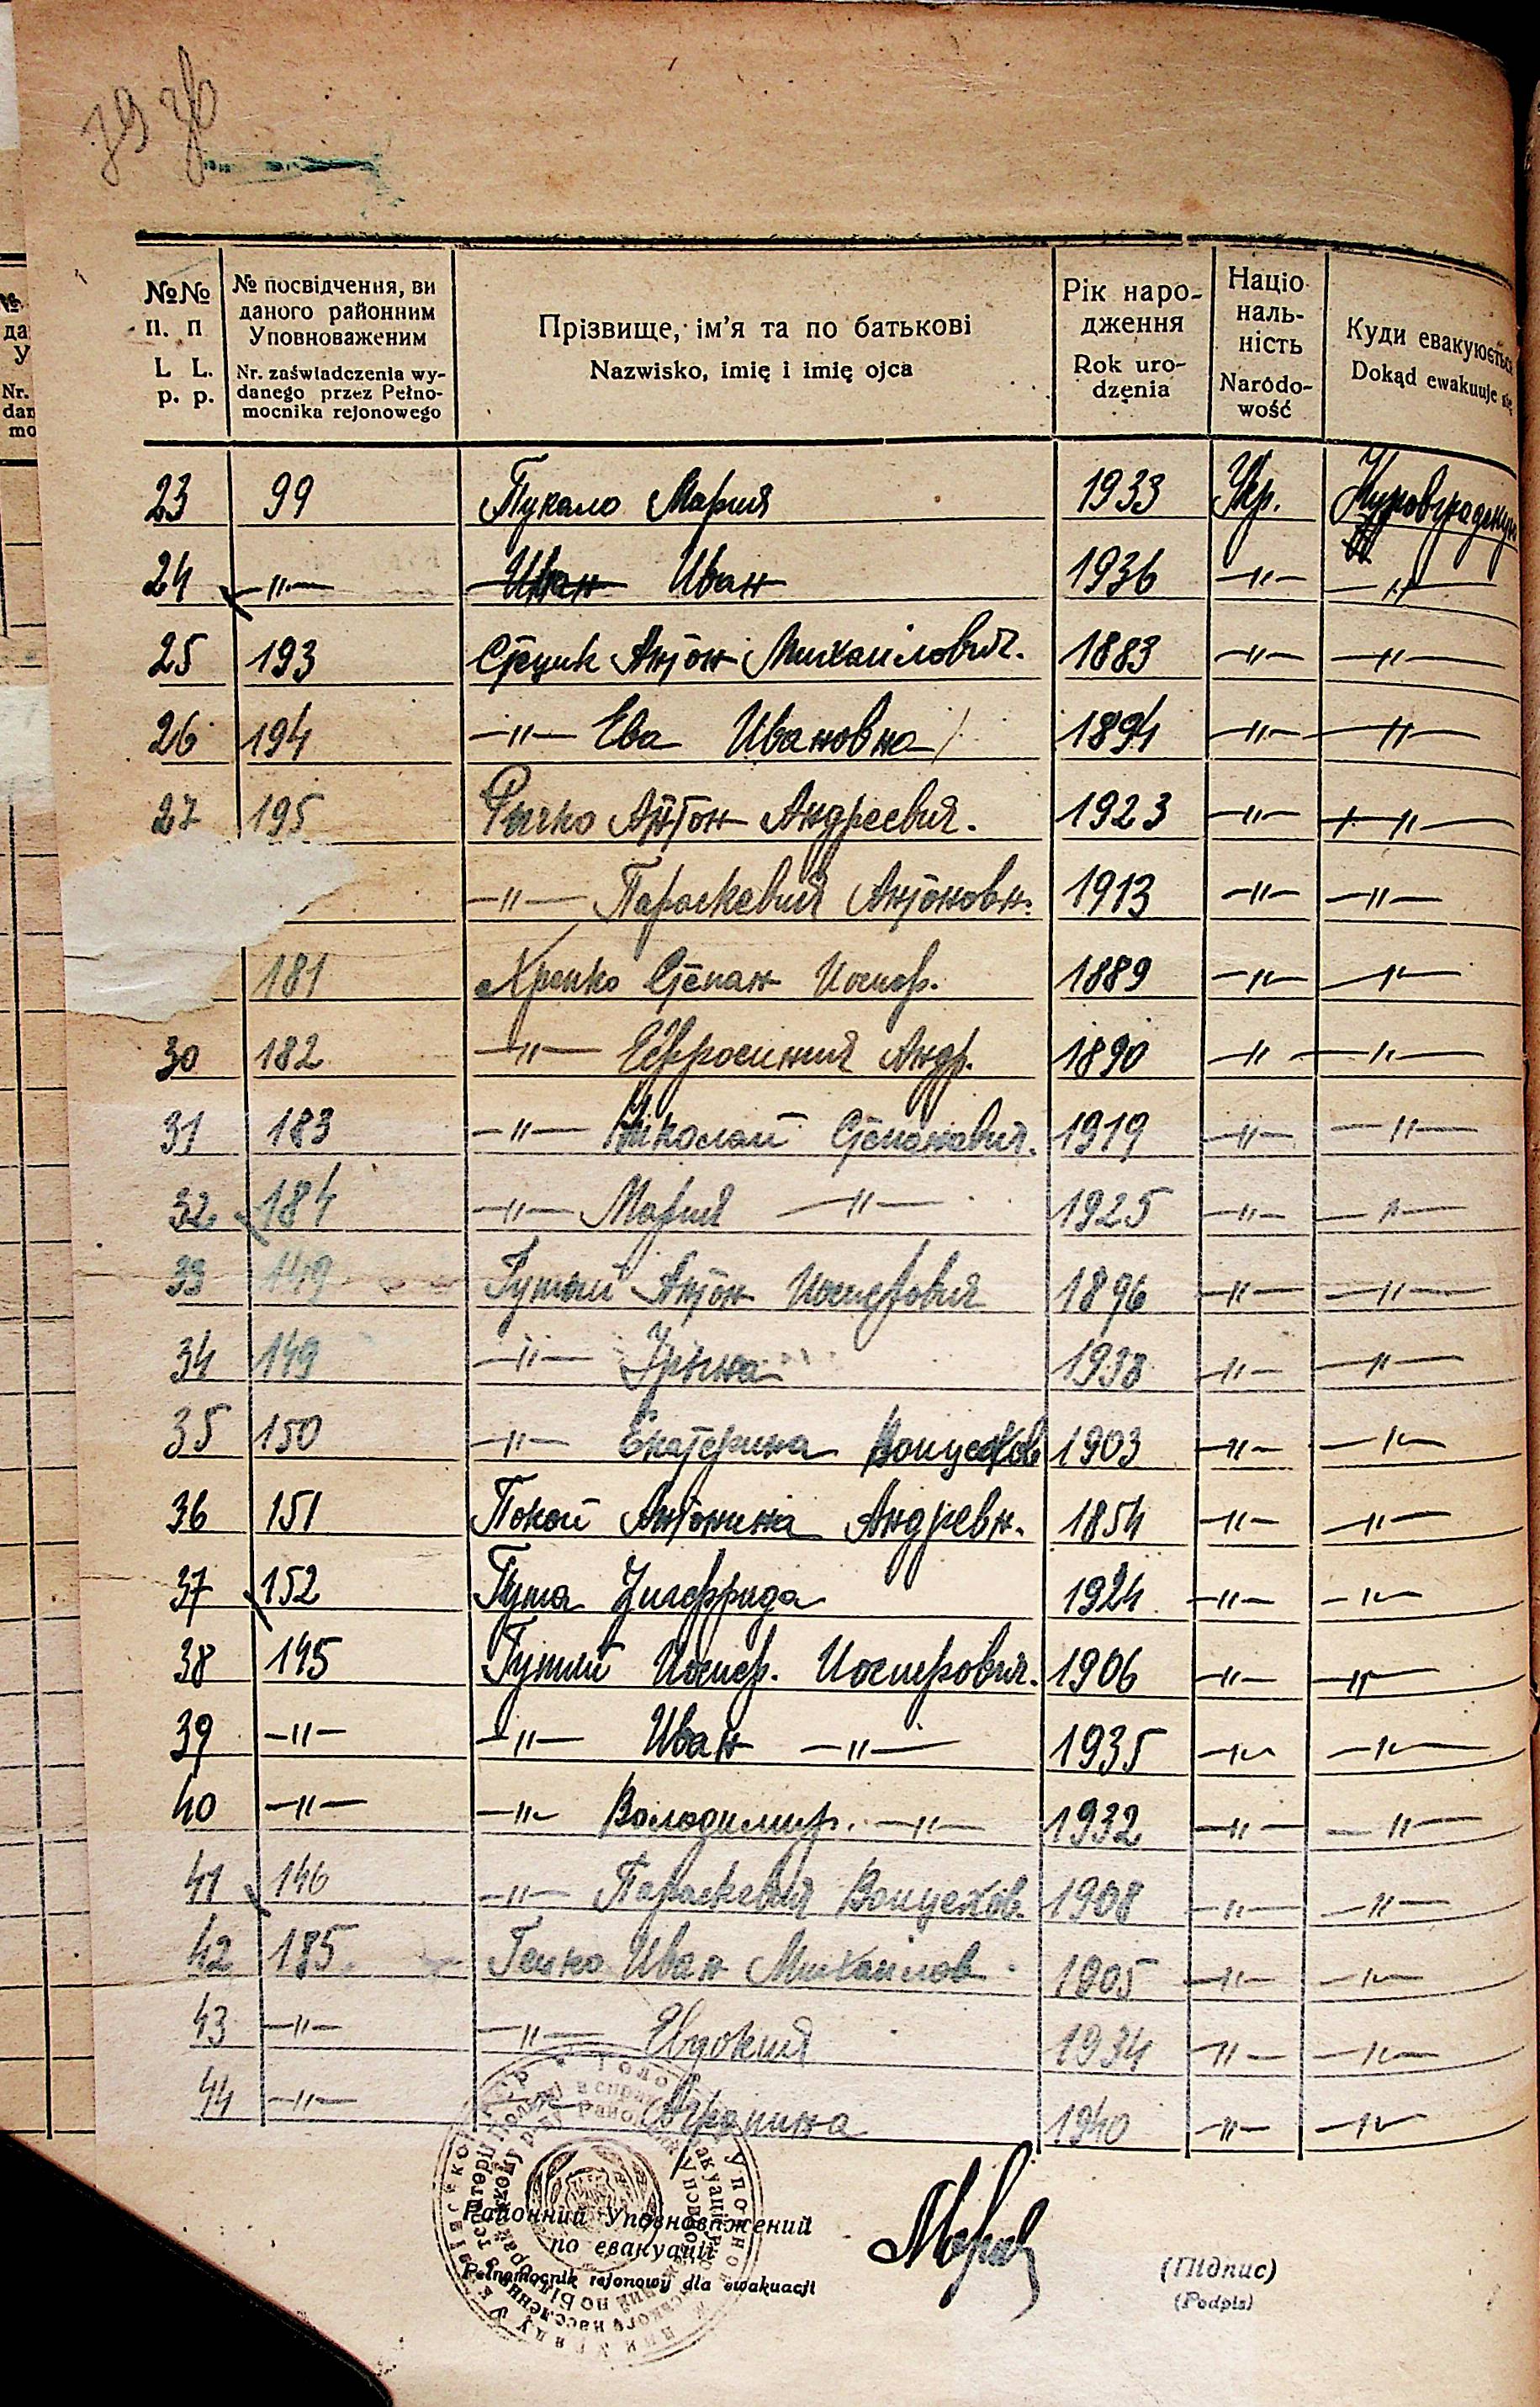 79 зв
№№ п. п
L L. p. p.
№ посвідчення, ви
даного районним
Уповноваженим
Nr. zaświadczenia wy-
danego przez Pełno-
mocnika rejonowego
Прізвище, ім'я та по батькові
Nazwisko, imię i imię ojca
Рік наро-
дження
Rok uro-
dzenia
Націо
наль-
ність
Narodo-
wość
Куди евакуюється
Dokąd ewakuuje się
23 99 Пукало Мария 1933 Укр. Кировоградскую
24 —"— Иван Иван 1936 —"— —"—
25 193 Стецик Антон Михаилович. 1883 —"— —"—
26 194 —"— Ева Ивановна 1894 —"— —"—
27 195 Антон Андреевич. 1923 —"— —"—
—"— Параскевия Антоновн. 1913 —"— —"—
181 Хрепко Степан Иосиф. 1889 —"— —"—
30 182 —"— Ефросиния Андр. 1890 —"— —"—
31 183 —"— Николай Степанович. 1919 —"— —"—
32 184 —"— Мария —"— 1925 —"— —"—
33 149 Гутий Антон Иосифович 1896 —"— —"—
34 149 —"— 1938 —"— —"—
35 150 —"— Екатерина Войцехов 1903 —"— —"—
36 151 Покой Антонина Андревн. 1854 —"— —"—
37 152 Зигефрида 1924 —"— —"—
38 145 Гутий Иосиф. Иосифович. 1906 —"— —"—
39 —"— —"— Иван —"— 1935 —"— —"—
40 —"— —"— Володимир. —"— 1932 —"— —"—
41 146 —"— Параскевия Войцехов. 1908 —"— —"—
42 185. Иван Михаилов 1905 —"— —"—
43 —"— —"— Евдокия 1934 —"— —"—
44 —"— —"— 1940 —"— —"—
Районний Уповноважений
по евакуації
Pełnomocnik rejonowy dla ewakuacji
(Підпис)
(Podpis)